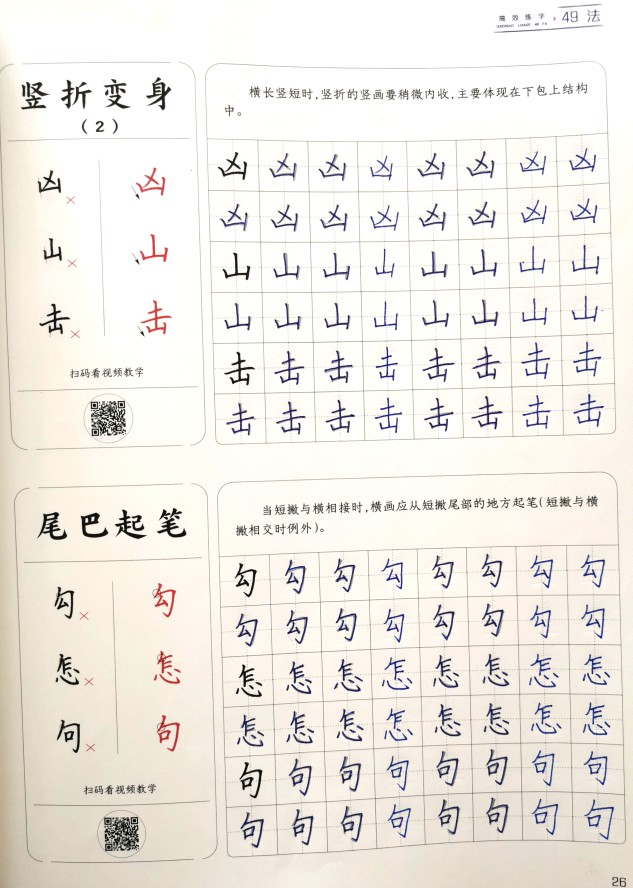 高效练字·49法
GAOXIAO LIANZI 49 FA
竖折变身
(2)
凶× 凶
山× 山
击× 击
扫码看视频教学
横长竖短时,竖折的竖画要稍微内收,主要体现在下包上结构
中。
凶凶凶凶凶凶凶凶
凶凶凶凶凶凶凶凶
山山山山山山山山
山山山山山山山山
击击击击击击击击
击击击击击击击击
尾巴起笔
勾× 勾
怎× 怎
句× 句
扫码看视频教学
当短撇与横相接时,横画应从短撇尾部的地方起笔(短撇与横
撇相交时例外)。
勾勾勾勾勾勾勾勾
勾勾勾勾勾勾勾勾
怎怎怎怎怎怎怎怎
怎怎怎怎怎怎怎怎
句句句句句句句句
句句句句句句句句
26